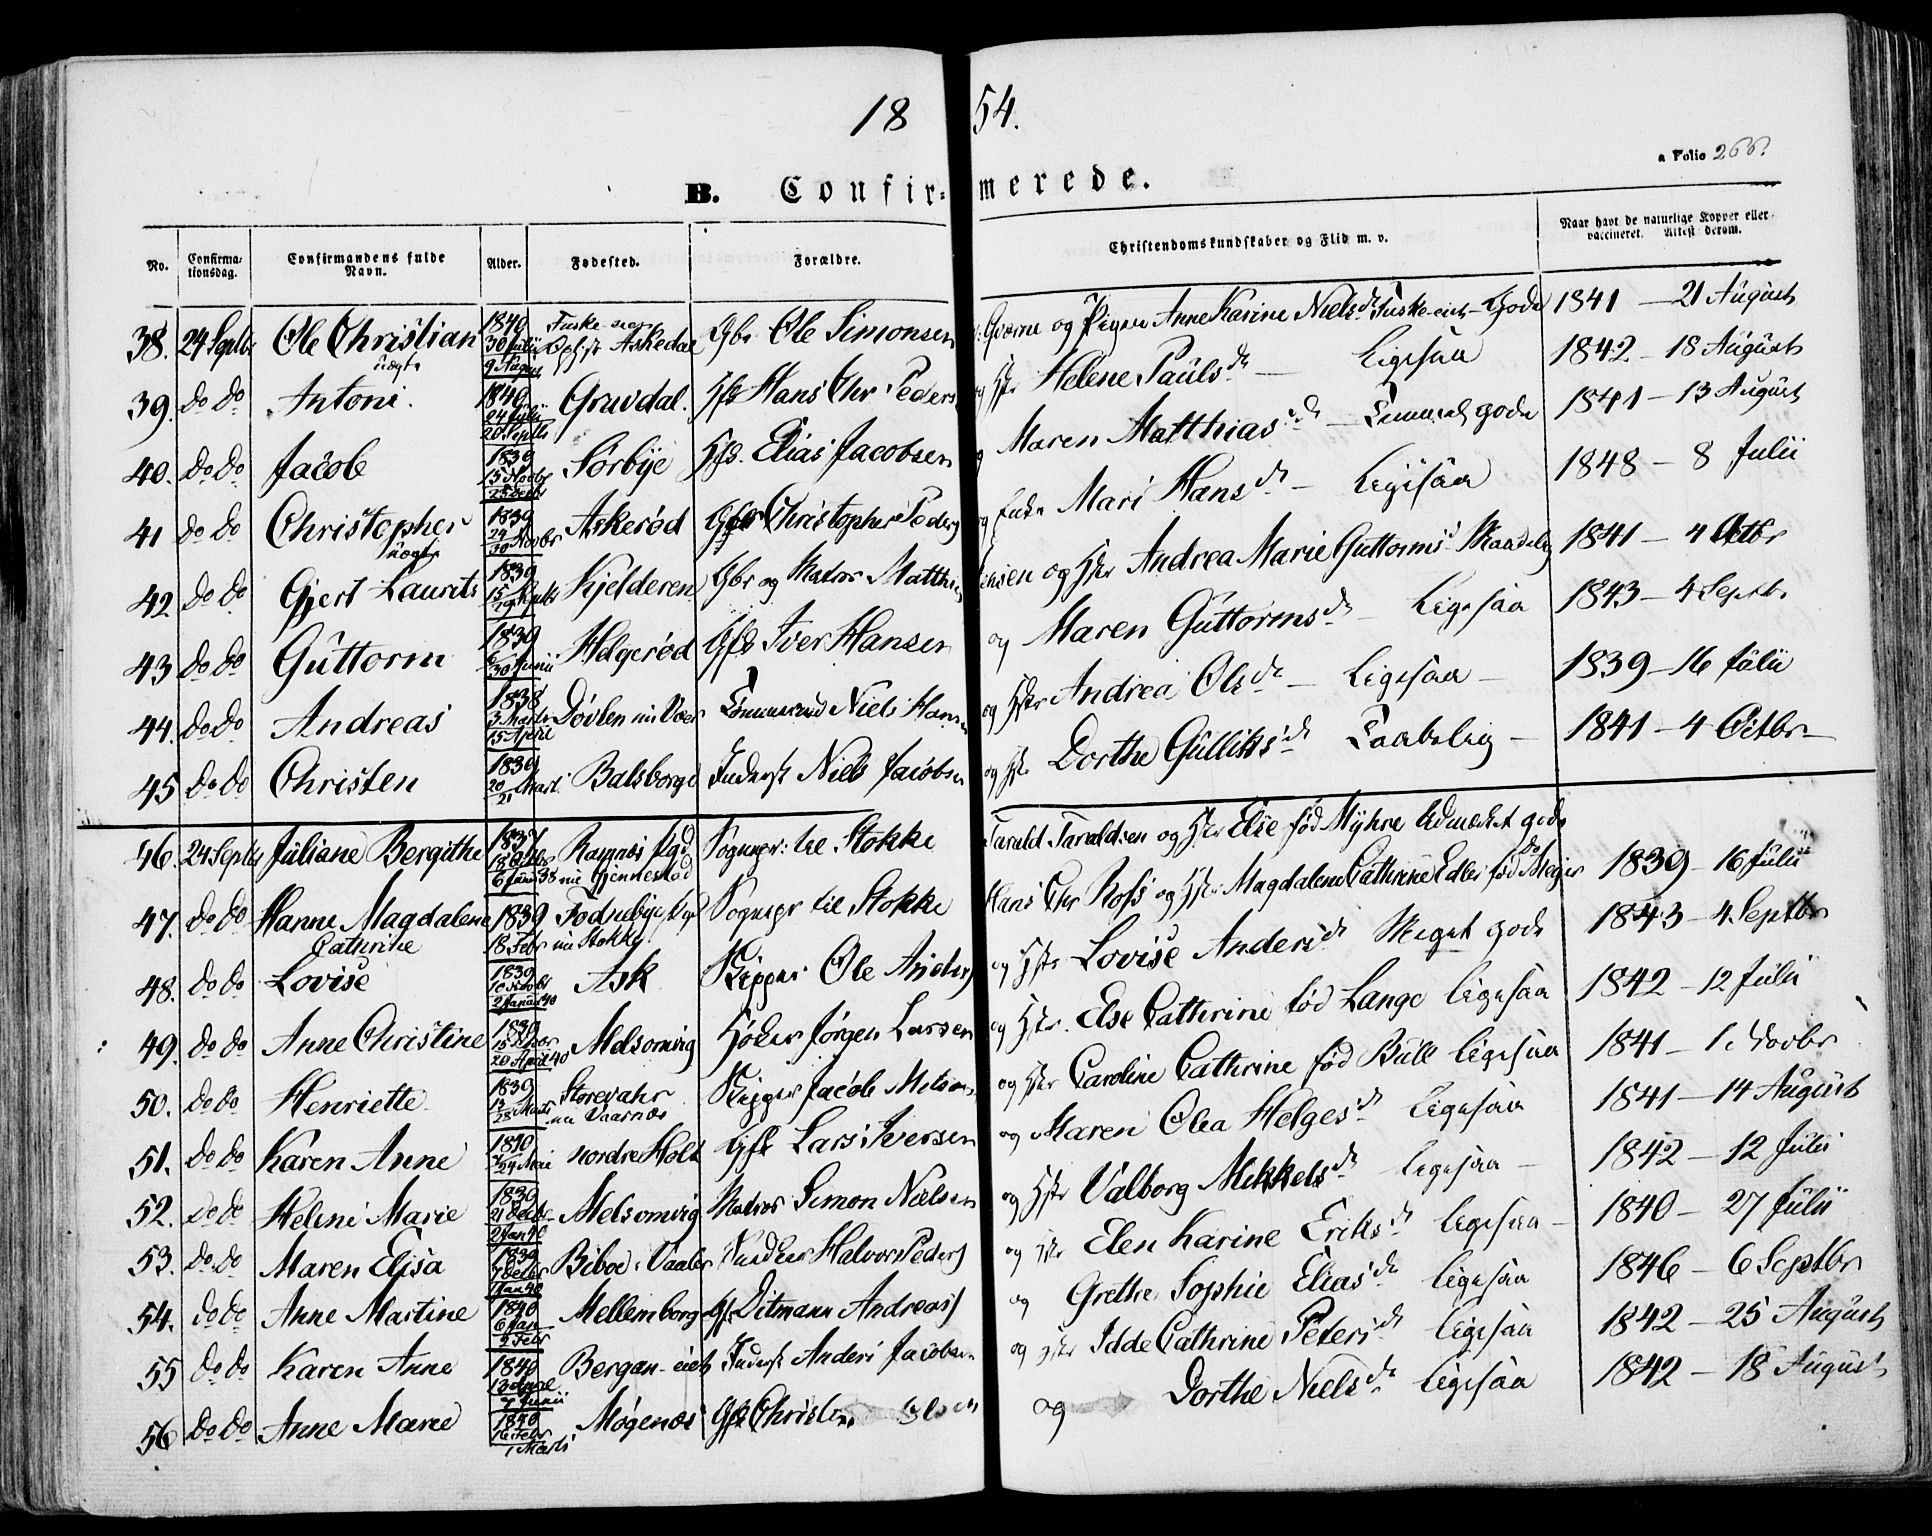 18 54.
a Folio 266.
B. Confir- merede.
No. Confirma-tionsdag. Confirmandens fulde Navn. Alder. Fødested. Forældre. Christendomskundskaber og Flid m. v. Naar havt de naturlige Kopper eller vaccineret. Attest derom.
38. 24 Septbr Ole Christian uægte 1840 30 Julii 9 August Askedal Gbr Ole Simonsen og Pigen Anne Karine Nielsd Fuske-eie Gode 1841 — 21 August
39. do do Antoni. 1840 24 Julii 20 Septb Gruvdal. Hfd Hans Chr Peders og Hstr Helene Paulsd — Ligesaa 1842 — 18 August
40. do do Jacob 1839 15 Novbr 25 Decbr Sørbye Hfd. Elias Jacobsen og Maren Matthiasd — Temmel gode 1841 — 13 August
41 do do Christopher uægte 1839 29 30 Novbr Askerød Christopher Peders og Enke Mari Hansd — Ligesaa 1848 — 8 Julii
42 do do Gjert Laurits 1839 15 Septb Kjelderen Gbr og Matros Matthi asen og Hstr Andrea Marie Guttormsd Maadelig 1841 — 4 Octbr
43 do do Guttorm 1839 6 30 Junii Helgerød Gfd Iver Hansen og Maren Guttormsd — Ligesaa 1843 — 4 Septbr
44. do do Andreas 1838 3 Marts 15 April Døvlen Niels Hansen og Hstr Andrea Olsd — Ligesaa — 1839 — 16 Julii
45 do do Christen 1839 20 21 Marts Balsborge Inderst Niels Jacobsen og Hstr Dorthe Gulliksd Taabelig — 1841 — 4 Octbr
46. 24 Septbr Juliane Bergithe 1837 18 Octbr 6 Jan 38 Ramnes Pgd nu Gjennestad Sognepr: til Stokke Tarald Taraldsen og Hstr Else fød Myhre Udmærket gode 1839 — 16 Julii
47. do do Hanne Magdalene Cathrine 1839 18 Febr nu Stokke Sognepr til Stokke Hans Chr Ross og Hstr Magdalene Cathrine Edle fød Meyer do 1843 — 4 Septbr
48. do do Lovise 1839 10 Novbr 2 Januar 40 Ask Skipper Ole Anders og Hstr Lovise Andersd Meget gode 1842 — 12 Julii
49. do do Anne Christine 1839 20 April 40 Melsomvig Høker Jørgen Larsen og Hstr. Else Cathrine fød Lange Ligesaa 1841 — 1 Novbr
50. do do Henriette 1839 28 Storevahr nu Vaarnæs Skipper Jacob Melsom og Hstr Caroline Cathrine fød Bull Ligesaa 1841 — 14 August
51. do do Karen Anne 1840 24 Mai nordre Holt Gfd Lars Iversen og Maren Olea Helgesd Ligesaa 1842 — 12 Julii
52. do do Helene Marie 1839 21 Octbr 2 Jan 40 Melsomvig Matros Simon Nielsen og Hstr Valborg Mikkelsd Ligesaa — 1840 — 27 Julii
53. do do Maren Elisa 1839 7 Decbr 1 Jan 40 Biboe i Vaaler Halvor Peders og Hstr Elen Karine Eriksd Ligesaa — 1846 — 6 Septbr
54. do do Anne Martine 1840 6 Jan 2 Febr Mellemborge Gfd Ditmann Andreas og Grethe Sophie Eliasd Ligesaa 1842 — 25 August
55 do do Karen Anne 1840 13 April 7 Junii Bergan-eiet Inderst Anders Jacobsen og Hstr Idde Cathrine Petersd Ligesaa 1842 — 18 August
56 do do Anne Marie 1840 16 Febr 1 Marts Møgenæs Gfd Christen Olsen og Dorthe Nielsd Ligesaa